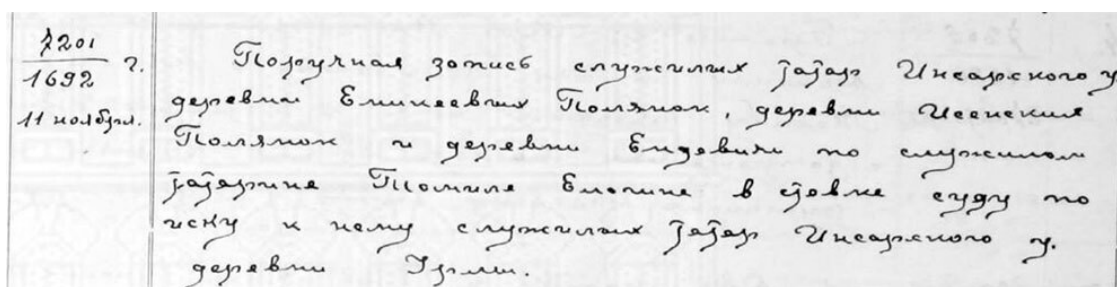 7201
1692 г.
11 ноября.
Поручная запись служилых татар Инсарского у
деревни Еникеевых Полянок, деревни Исенских
Полянок и деревни по служилом
татарине Томиле в ставке суду по
иску к нему служилых татар Инсарского у.
деревни Урми.